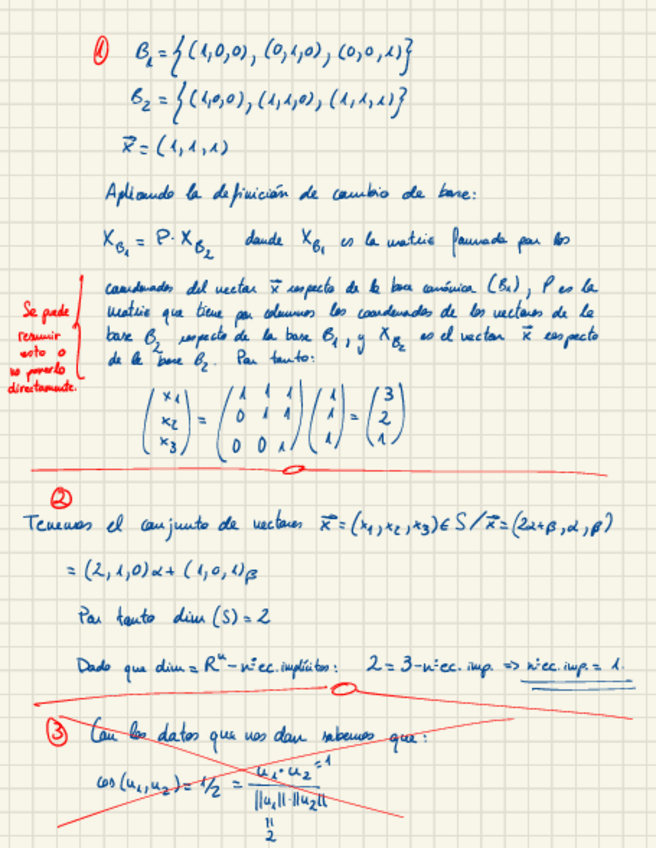 ① B₁ = {(1,0,0), (0,1,0), (0,0,1)}
B₂ = {(1,0,0), (1,1,0), (1,1,1)}
x⃗ = (1,1,1)
Aplicando la definición de cambio de base:
X_B₁ = P · X_B₂ donde X_B₁ es la matriz formada por las
coordenadas del vector x⃗ respecto de la base canónica (B₁), P es la
matriz que tiene por columnas las coordenadas de los vectores de la
base B₂ respecto de la base B₁, y X_B₂ es el vector x⃗ respecto
de la base B₂. Por tanto:
Se puede
resumir
esto o
no ponerlo
directamente.
(x₁ x₂ x₃) = (1 1 1; 0 1 1; 0 0 1) (1 1 1) = (3 2 1)
②
Tenemos el conjunto de vectores x⃗ = (x₁, x₂, x₃) ∈ S / x⃗ = (2α+β, α, β)
= (2,1,0)α + (1,0,1)β
Por tanto dim (S) = 2
Dado que dim = Rⁿ - nº ec. implícitas: 2 = 3 - nº ec. imp. => nº ec. imp. = 1.
③ Con los datos que nos dan sabemos que:
cos(u₁, u₂) = 1/2 = u₁ · u₂ = 1 / ||u₁|| · ||u₂||
=
2